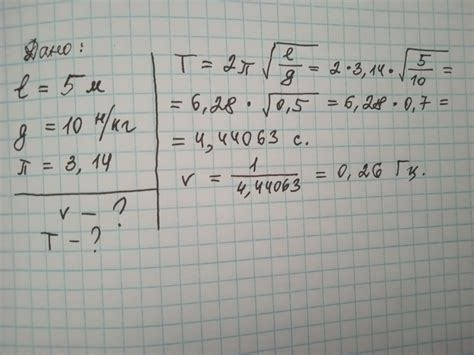 Дано:
l = 5 м
g = 10 н/кг
π = 3,14
v - ?
T - ?
T = 2π √(l/g) = 2·3,14·√(5/10) =
= 6,28 · √0,5 = 6,28·0,7 =
= 4,44063 с.
v = 1/4,44063 = 0,26 Гц.